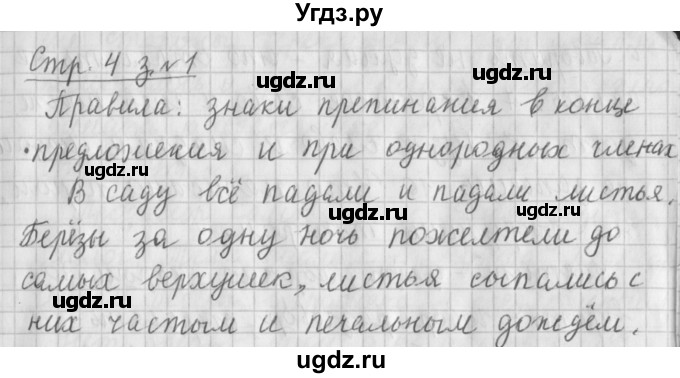 Угдз.ру
Стр. 4 з. №1
ugdz.ru ugdz.ru
Правила: знаки препинания в конце
предложения и при однородных членах
ugdz.ru ugdz.ru
В саду всё падали и падали листья.
Берёзы за одну ночь пожелтели до
ugdz.ru
самых верхушек, листья сыпались с
ugdz.ru
них частым и печальным дождём.
ugdz.ru